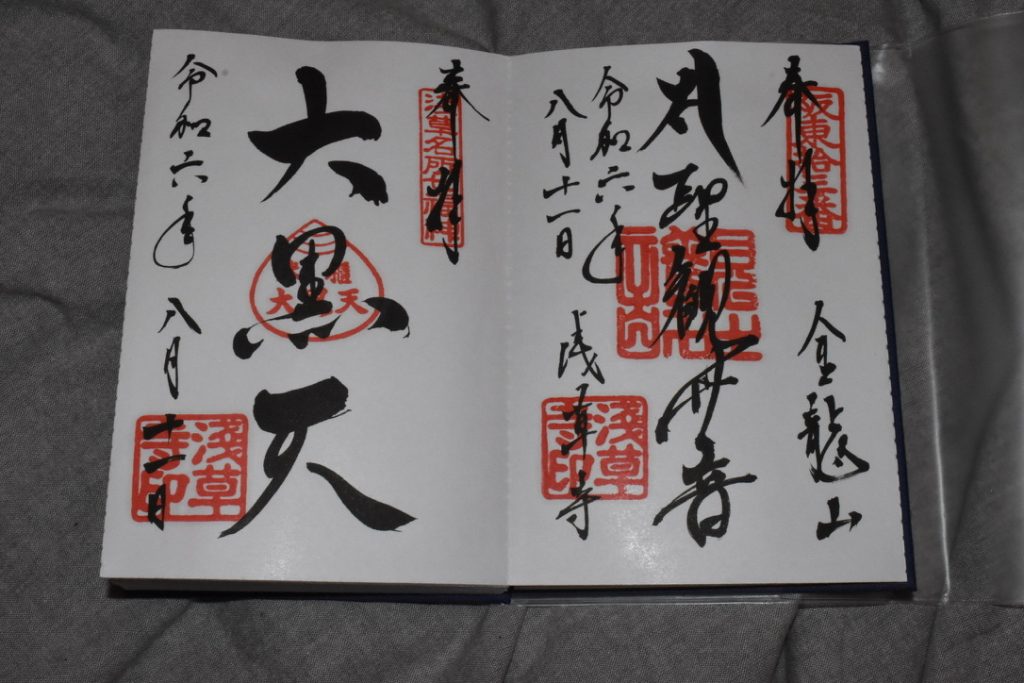 奉拝
坂東拾三番
金龍山
聖観世音
令和六年
八月十一日
浅草寺
淺草寺印
奉拝
浅草名所七福神
大黒天
令和六年 八月十一日
淺草寺印